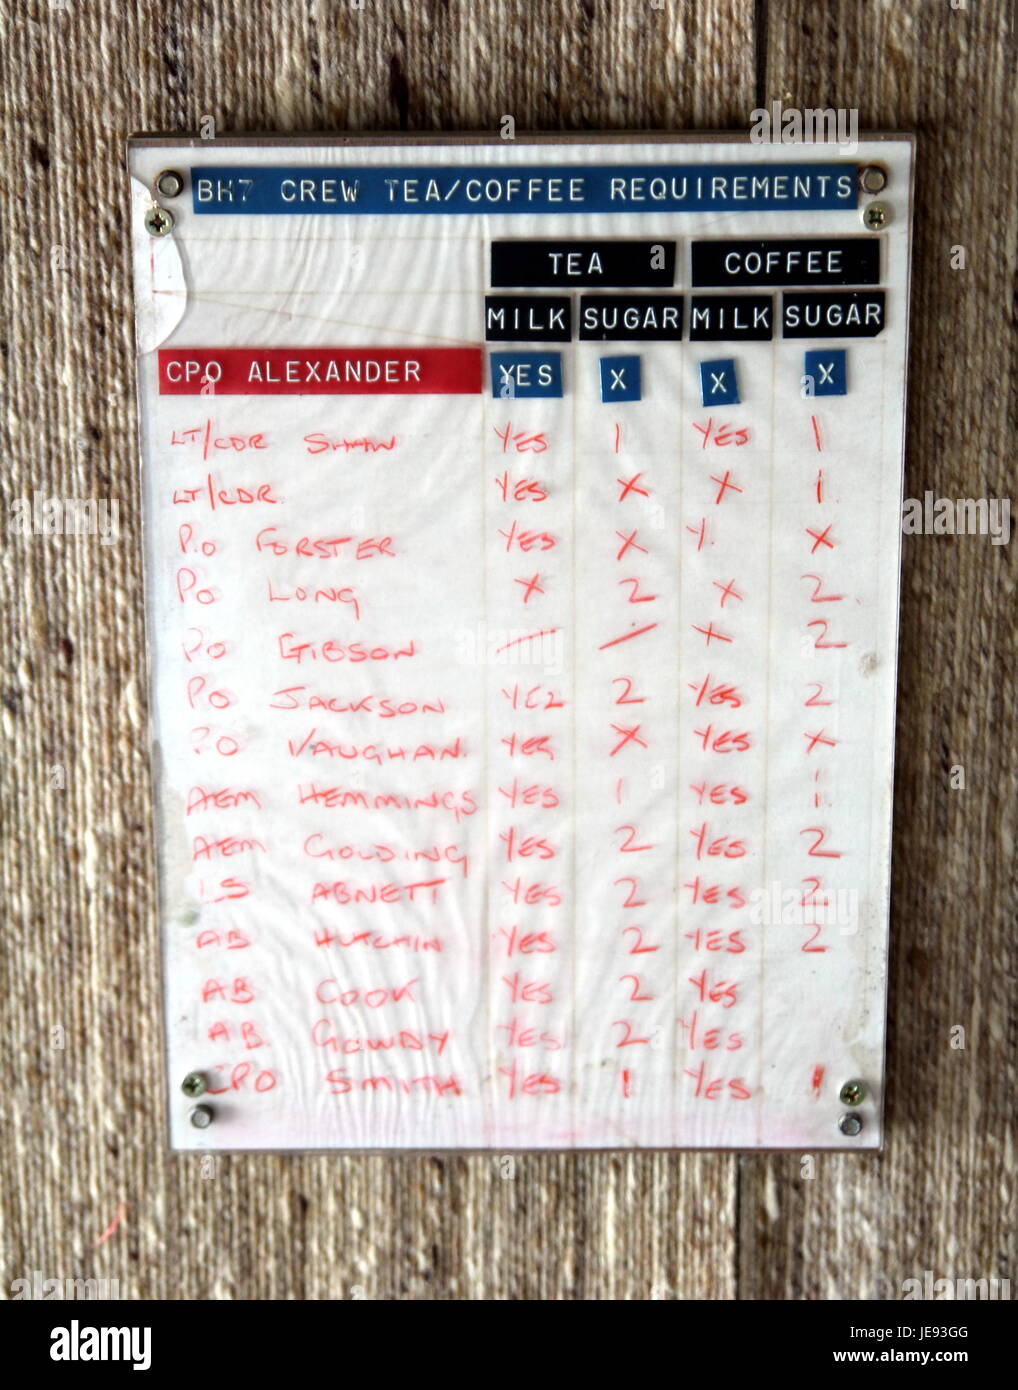 BH7 CREW TEA/COFFEE REQUIREMENTS
TEA COFFEE
MILK SUGAR MILK SUGAR
CPO ALEXANDER YES X X X
LT/CDR SHAW YES 1 YES 1
LT/CDR. YES X X 1
P.O FORSTER YES X Y. X
PO LONG X 2 X 2
PO GIBSON — / X 2
PO JACKSON YES 2 YES 2
PO VAUGHAN YES X YES X
AEM HEMMINGS YES 1 YES 1
AEM GOLDING YES 2 YES 2
LS ABNETT YES 2 YES 2
AB HUTCHIN YES 2 YES 2
AB COOK YES 2 YES
AB GOWDY YES 2 YES
CPO SMITH YES 1 YES 1
alamy stock photo
alamy
JE93GG
www.alamy.com